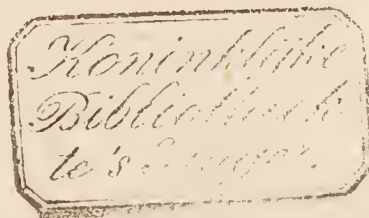 Koninklijke
Bibliotheek
te's Hage